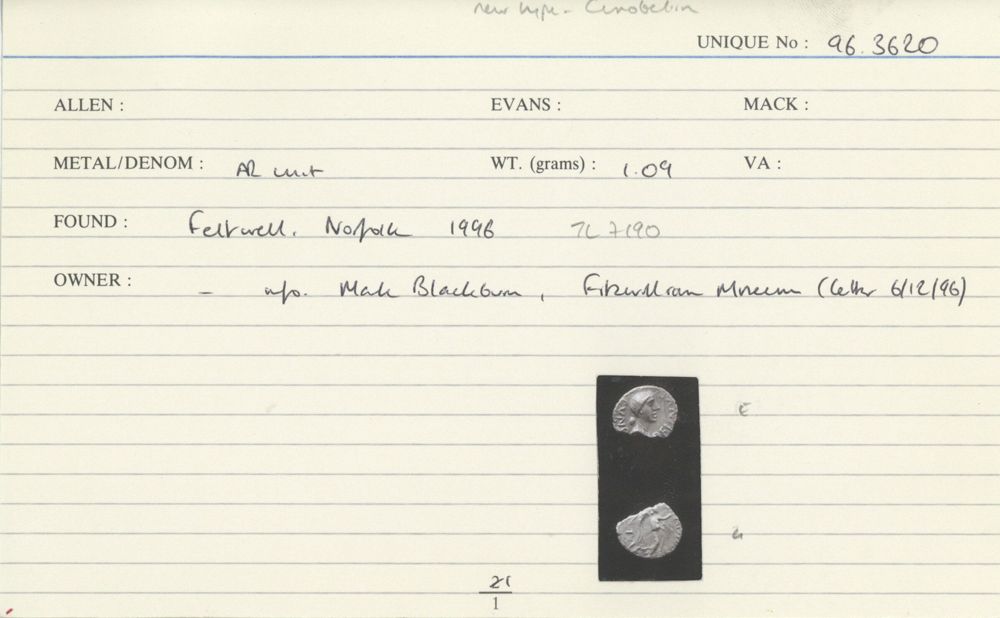 new type - Cunobelin
UNIQUE No : 96.3620
ALLEN : EVANS : MACK :
METAL/DENOM : AR unit WT. (grams) : 1.09 VA :
FOUND : Feltwell, Norfolk 1996 TL 7190
OWNER : - info. Mark Blackburn, Fitzwilliam Museum (letter 6/12/96)
21
1